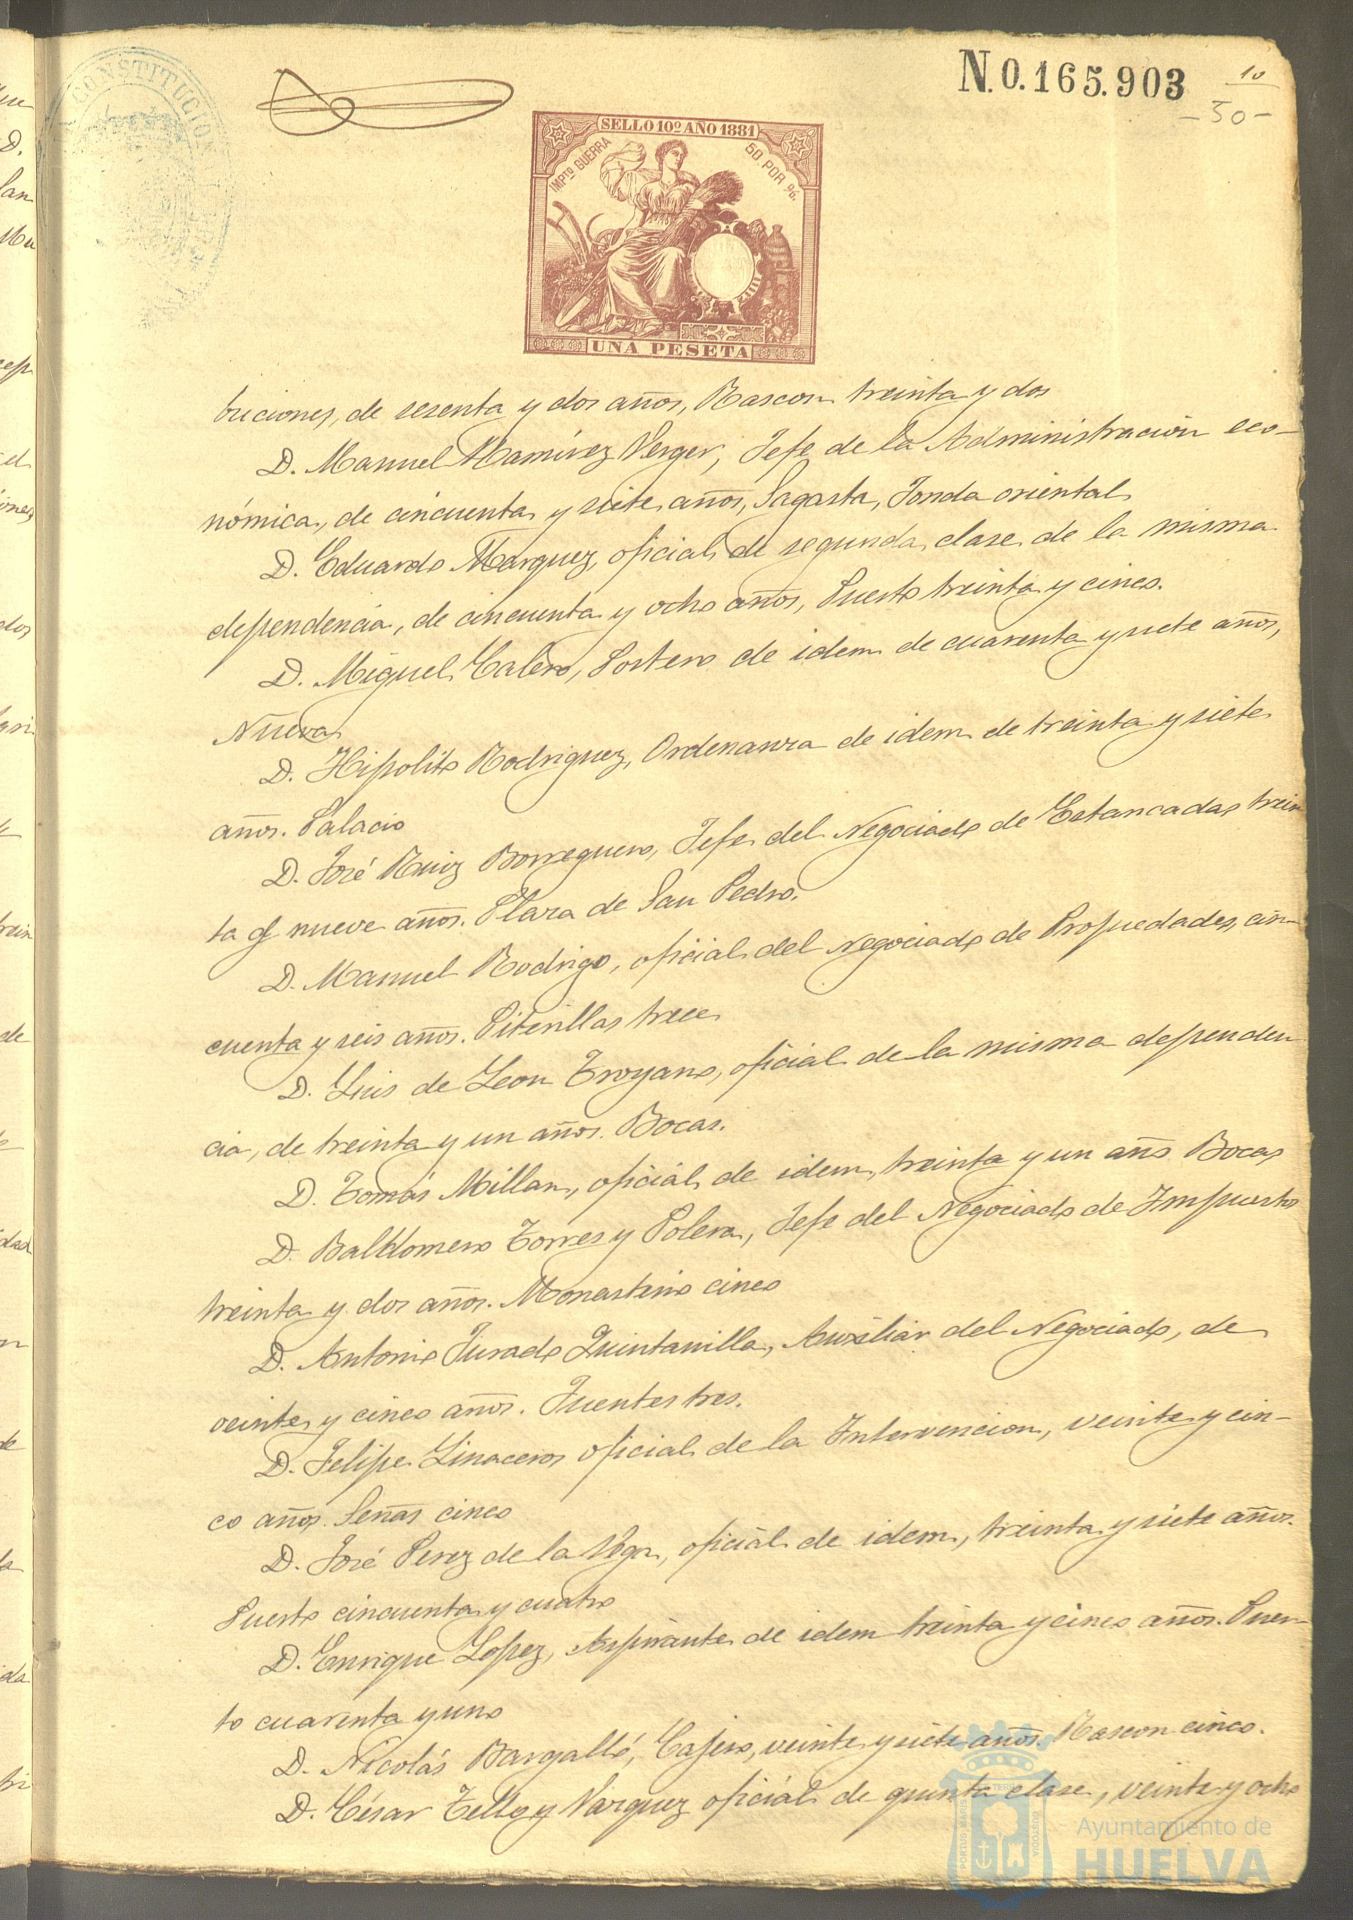 N.0.165.903
10
-50-
CONSTITUCION
SELLO 10º AÑO 1881
IMPTO GUERRA
50 POR %
UNA PESETA
buciones, de sesenta y dos años, Rascon treinta y dos
D. Manuel Ramírez Verger, Jefe de la Administracion eco-
nómica, de cincuenta y siete años, Sagasta, Fonda oriental
D. Eduardo Marquez, oficial de segunda clase de la misma
dependencia, de cincuenta y ocho años, Puerto treinta y cinco.
D. Miguel Calero, Portero de idem de cuarenta y siete años,
Nueva
D. Hipolito Rodriguez, Ordenanza de idem de treinta y siete
años. Palacio
D. José Ruiz Borreguero, Jefe del Negociado de Estancadas trein
ta y nueve años. Plaza de San Pedro.
D. Manuel Rodrigo, oficial del Negociado de Propiedades, cin-
cuenta y seis años. Piterillas trece
D. Luis de Leon Troyano, oficial de la misma dependen
cia, de treinta y un años. Bocas.
D. Tomás Millan, oficial de idem, treinta y un año Bocas
D. Baldomero Torres y Polera, Jefe del Negociado de Impuestos
treinta y dos años. Monasterio cinco
D. Antonio Jurado Quintanilla, Auxiliar del Negociado, de
veinte y cinco años. Fuentes tres.
D. Felipe Linaceros oficial de la Intervencion, veinte y cin-
co años. Señas cinco
D. José Perez de la Vega, oficial de idem, treinta y siete años.
Puerto cincuenta y cuatro
D. Enrique Lopez, Aspirante de idem treinta y cinco años. Puer-
to cuarenta y uno
D. Nicolás Bargalló, Cajero, veinte y siete años. Rascon cinco.
D. César Tello y Vazquez oficial de quinta clase, veinte y ocho
Ayuntamiento de
HUELVA